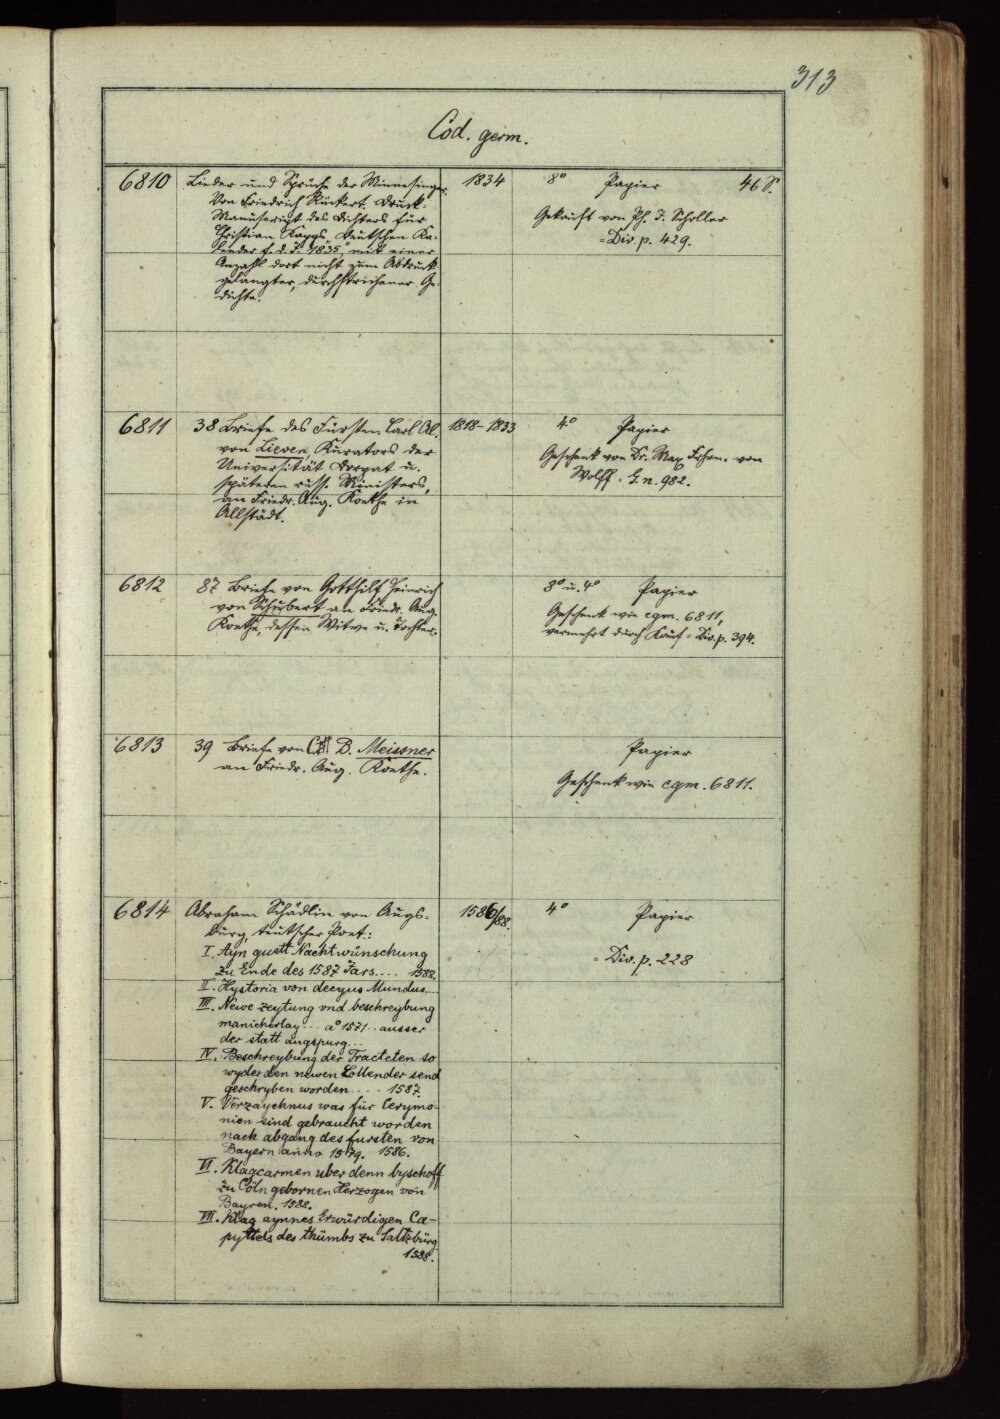 313
Cod. germ.
6810 Lieder und Sprüche der Minnesinger. 1834 8° Papier 46 S.
Von Friedrich Rückert. Druck-
Manuscript des Dichters für
Christian Kapps Deutschen Ka-
lender f. d. J. 1835, mit einer
Anzahl dort nicht zum Abdruck
gelangter, durchstrichener Ge-
dichte.
Gekauft von Ph. J. Scholler
= Div. p. 429.
6811 38 Briefe des Fürsten Carl Al. 1818-1833 4° Papier
von Lieven, Kurators der
Universität Dorpat u.
späteren russ. Ministers,
an Friedr. Aug. Koethe in
Allstädt.
Geschenk von Dr. Max Frhrn. von
Wolff. G. n. 982.
6812 87 Briefe von Gotthilf Heinrich 8° u. 4° Papier
von Schubert an Friedr. Aug.
Koethe, dessen Witwe u. Tochter.
Geschenk wie cgm. 6811,
vermehrt durch Kauf = Div. p. 394.
6813 39 Briefe von D. Meissner Papier
an Friedr. Aug. Koethe.
Geschenk wie cgm. 6811.
6814 Abraham Schädlin von Augs- 1586/88. 4° Papier
burg, teutscher Poet:
= Div. p. 228
I. Ayn guett Nachtwünschung
zu Ende des 1587 Jars.... 1588.
II. Hystoria von decyus Mundus...
III. Newe zeytung vnd beschreybung
manicherlay... a° 1571.. ausser
der statt augspurg...
IV. Beschreybung der Tracteten so
wyder den newen Collender send
geschryben worden.... 1587.
V. Verzaychnus was für Cerymo-
nien sind gebraucht worden
nach abgang des fursten von
Bayern anno 1579. 1586.
VI. Klagcarmen uber denn byschoff
zu Cöln gebornen Herzogen von
Bayren. 1588.
VII. Klag aynnes Erwürdigen Ca-
pyttels des thümbs zu Saltzbürg
1588.